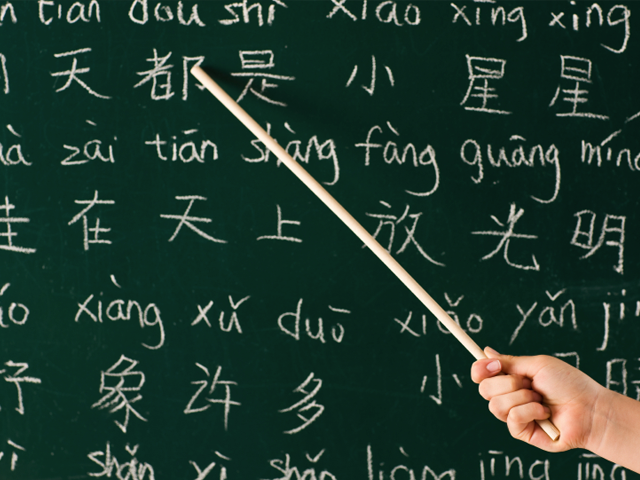 tiān dōu shì xiǎo xīng xīng
天 都 是 小 星 星
zài tiān shàng fàng guāng mín
在 天 上 放 光 明
xiàng xǔ duō xiǎo yǎn jin
象 许 多 小
shǎn yì shǎn liàng jīng jīng